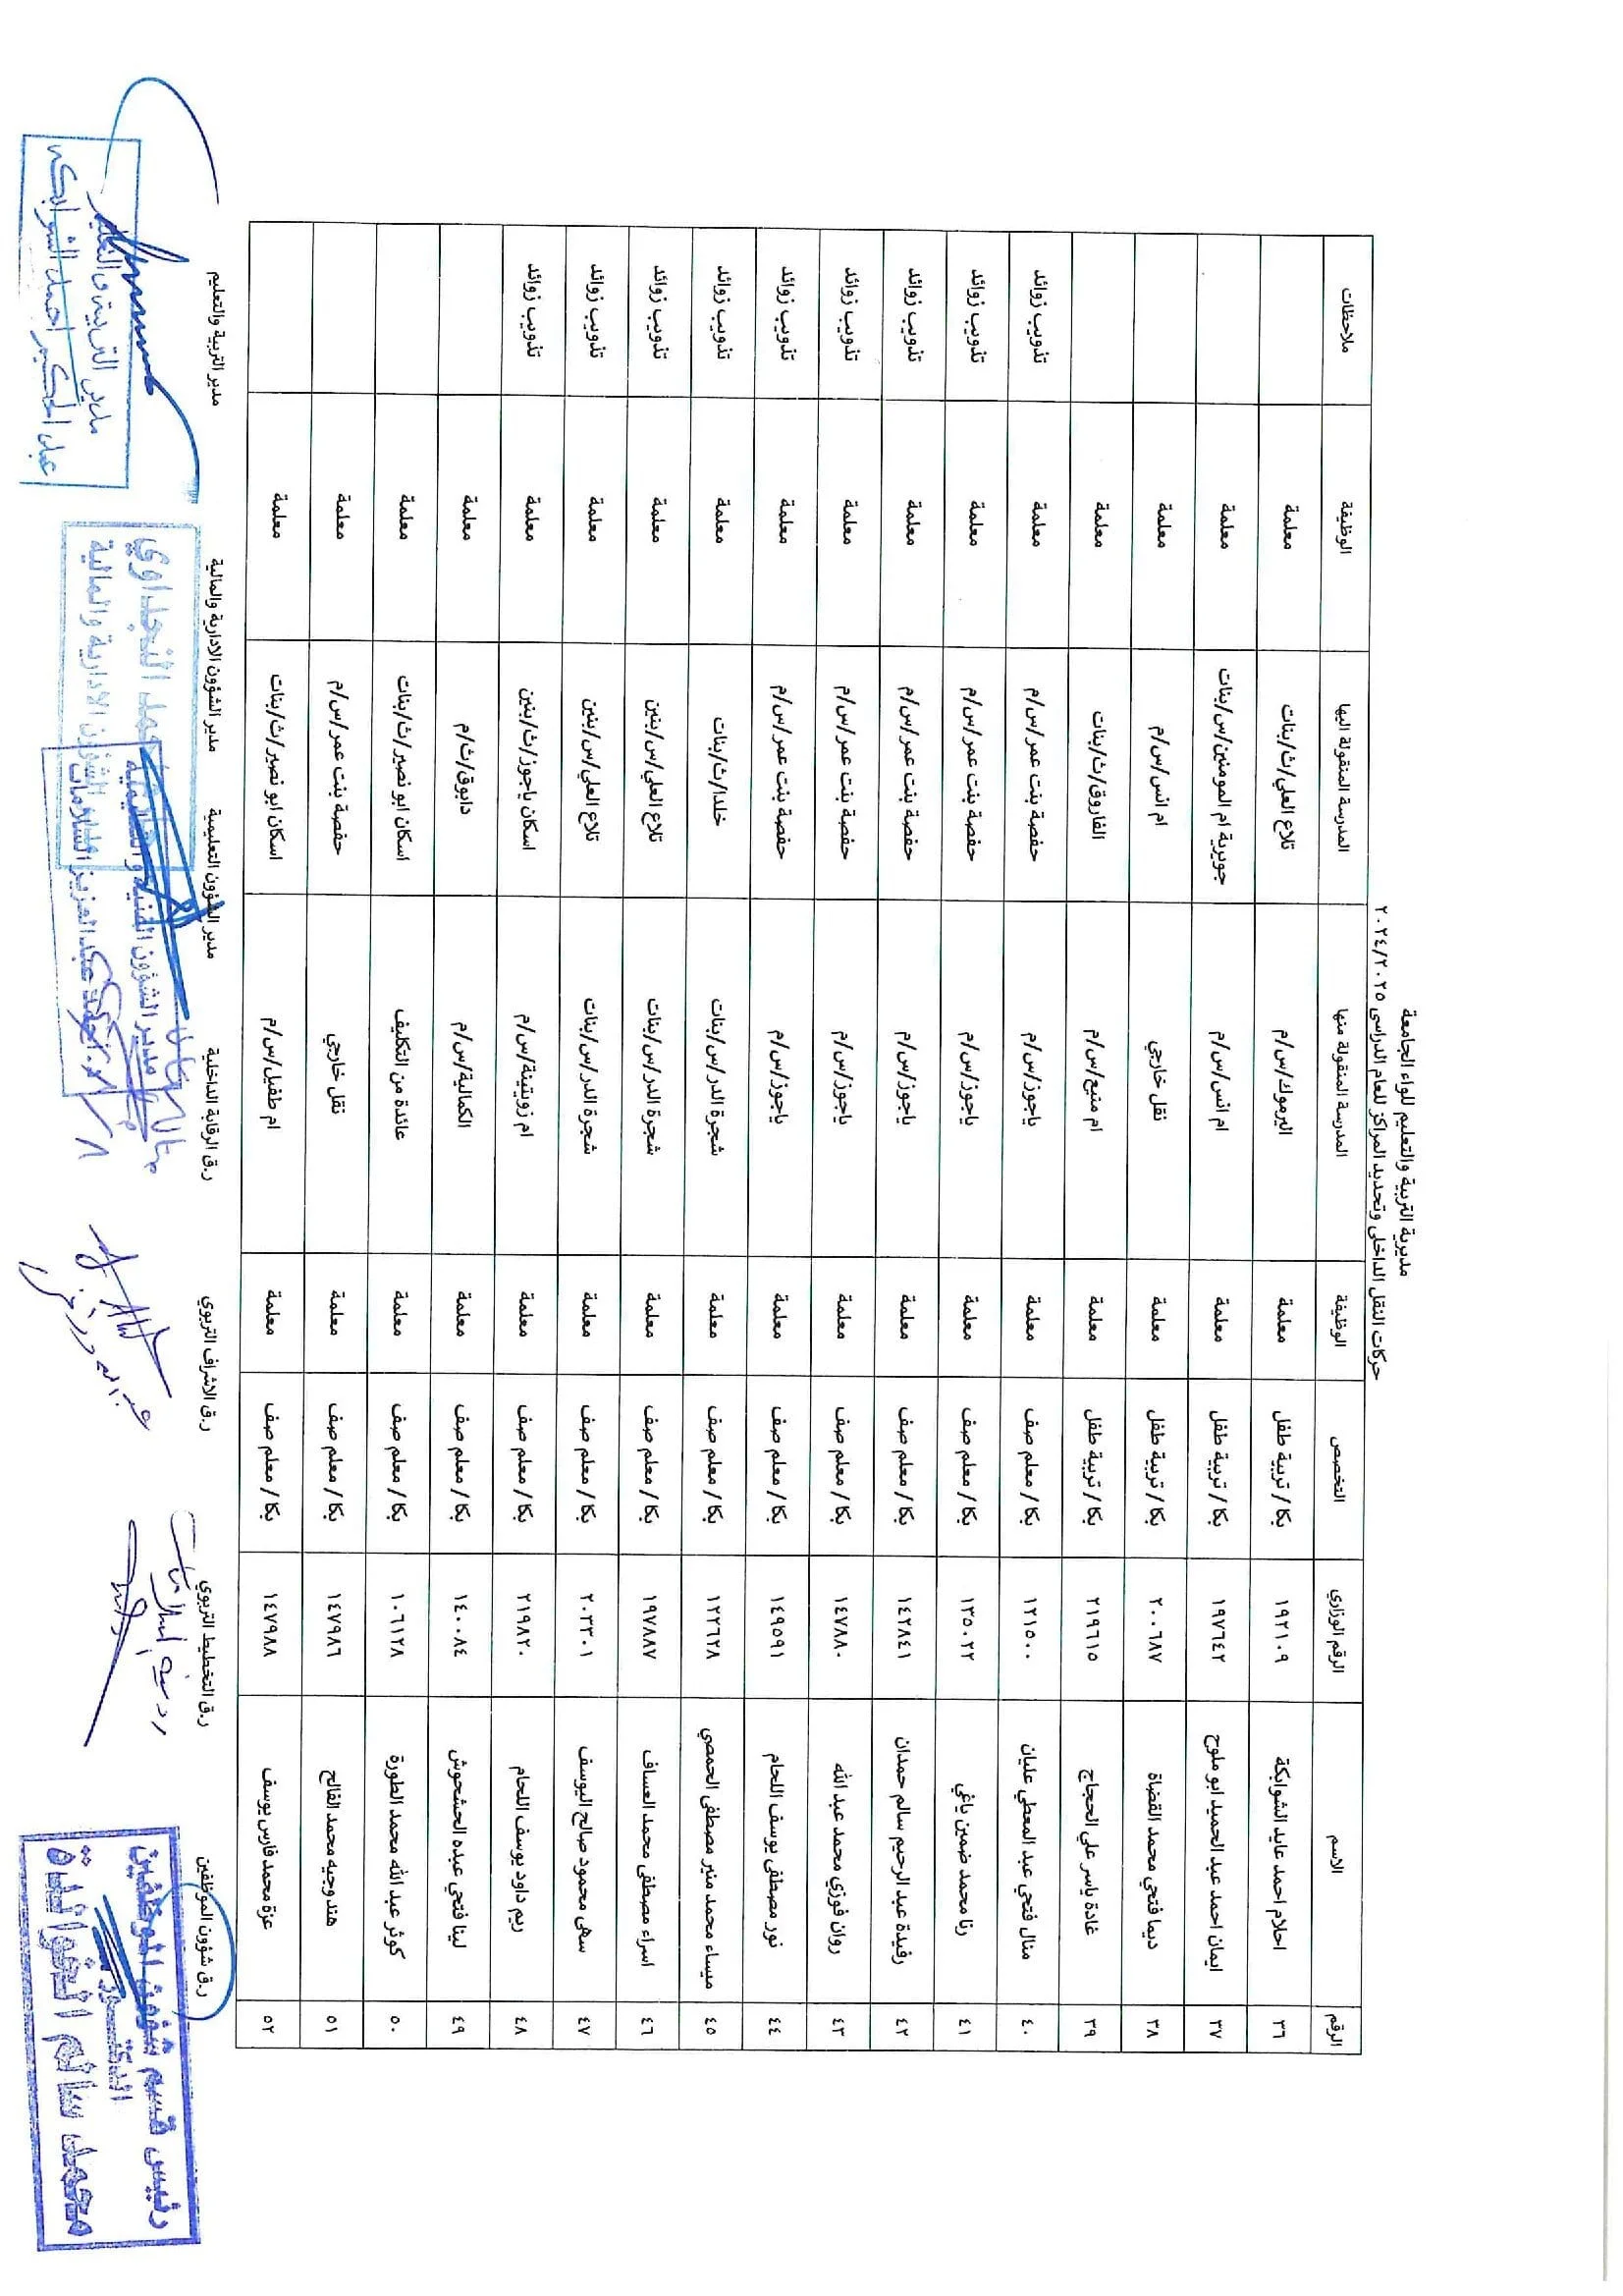 مديرية التربية والتعليم للواء الجامعة
حركات النقل الداخلي وتحديد المراكز للعام الدراسي ٢٠٢٤/٢٠٢٥
الرقم الاسم الرقم الوزاري التخصص الوظيفة المدرسة المنقولة منها المدرسة المنقولة اليها الوظيفة ملاحظات
٣٦ احلام احمد عايد الشوابكة ١٩٢١٠٩ بكا / تربية طفل معلمة اليرموك/س/م تلاع العلي/ث/بنات معلمة
٣٧ ايمان احمد عبد الحميد ابو ملوح ١٩٧٦٤٢ بكا / تربية طفل معلمة ام انس/س/م جويرية ام المومنين/س/بنات معلمة
٣٨ ديما فتحي محمد القضاة ٢٠٠٦٨٧ بكا / تربية طفل معلمة نقل خارجي ام انس/س/م معلمة
٣٩ غادة ياسر علي الحجاج ٢١٩٦١٥ بكا / تربية طفل معلمة ام منيع/س/م الفاروق/ث/بنات معلمة
٤٠ منال فتحي عبد المعطي عليان ١٢١٥٠٠ بكا / معلم صف معلمة ياجوز/س/م حفصة بنت عمر/س/م معلمة تذويب زوائد
٤١ رنا محمد ضمين ياغي ١٣٥٠٢٢ بكا / معلم صف معلمة ياجوز/س/م حفصة بنت عمر/س/م معلمة تذويب زوائد
٤٢ رفيدة عبد الرحيم سالم حمدان ١٤٢٨٤١ بكا / معلم صف معلمة ياجوز/س/م حفصة بنت عمر/س/م معلمة تذويب زوائد
٤٣ روان فوزي محمد عبد الله ١٤٧٨٨٠ بكا / معلم صف معلمة ياجوز/س/م حفصة بنت عمر/س/م معلمة تذويب زوائد
٤٤ نور مصطفى يوسف اللحام ١٤٩٥٩١ بكا / معلم صف معلمة ياجوز/س/م حفصة بنت عمر/س/م معلمة تذويب زوائد
٤٥ ميساء محمد منير مصطفى الحمصي ١٢٢٦٢٨ بكا / معلم صف معلمة شجرة الدر/س/بنات خلدا/ث/بنات معلمة تذويب زوائد
٤٦ اسراء مصطفى محمد العساف ١٩٧٨٨٧ بكا / معلم صف معلمة شجرة الدر/س/بنات تلاع العلي/س/بنين معلمة تذويب زوائد
٤٧ سهى محمود صالح اليوسف ٢٠٣٣٠١ بكا / معلم صف معلمة شجرة الدر/س/بنات تلاع العلي/س/بنين معلمة تذويب زوائد
٤٨ ريم داود يوسف اللحام ٢١٩٨٢٠ بكا / معلم صف معلمة ام زويتينة/س/م اسكان ياجوز/ث/بنين معلمة تذويب زوائد
٤٩ لينا فتحي عبده الحشحوش ١٤٠٠٨٤ بكا / معلم صف معلمة الكمالية/س/م دابوق/ث/م معلمة
٥٠ كوثر عبد الله محمد الطورة ١٠٦١٢٨ بكا / معلم صف معلمة عائدة من التكليف اسكان ابو نصير/ث/بنات معلمة
٥١ هند وجيه محمد الفالح ١٤٧٩٨٦ بكا / معلم صف معلمة نقل خارجي حفصة بنت عمر/س/م معلمة
٥٢ عزة محمد فارس يوسف ١٤٧٩٨٨ بكا / معلم صف معلمة ام طفيل/س/م اسكان ابو نصير/ث/بنات معلمة
ر.ق شؤون الموظفين ر.ق التخطيط التربوي ر.ق الاشراف التربوي ر.ق الرقابة الداخلية مدير الشؤون التعليمية مدير الشؤون الادارية والمالية مدير التربية والتعليم
رئيس قسم شؤون الموظفين
الدكتور
محمد سالم الخوالدة
مدير الشؤون الفنية والتعليمية
مدير الشؤون الادارية والمالية
مدير التربية والتعليم
عبد الحكيم احمد الشوابكه